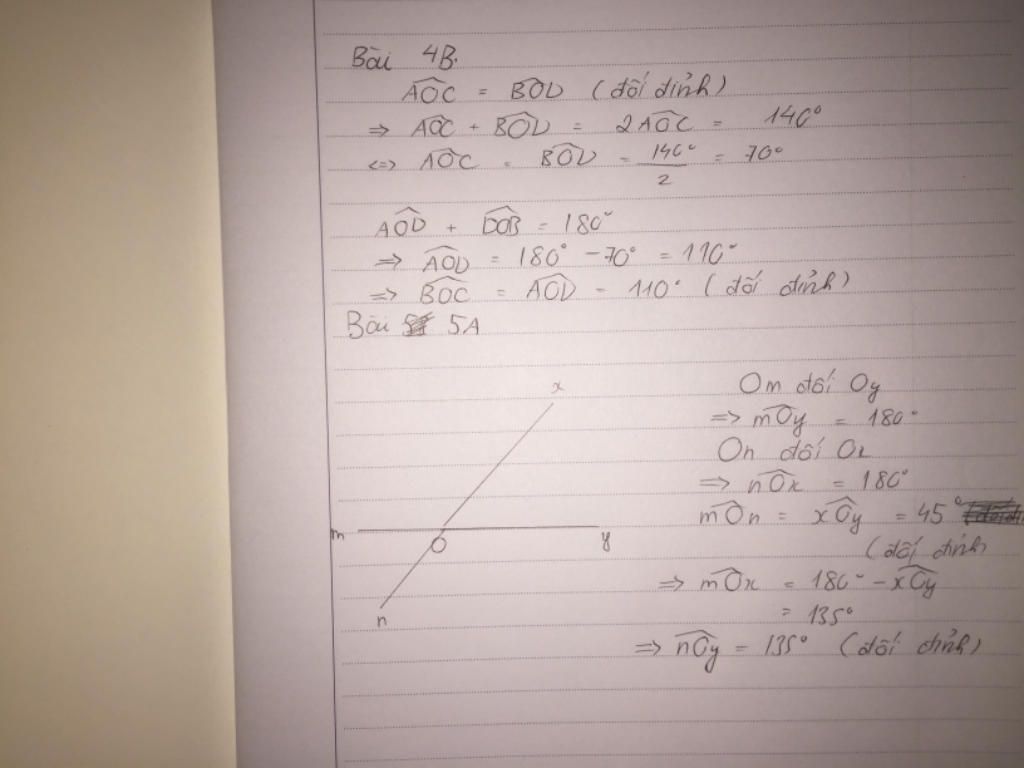 Bài 4B.
AOC = BOD (đối đỉnh)
=> AOC + BOD = 2AOC = 140°
<=> AOC = BOD = 140°/2 = 70°
AOD + DOB = 180°
=> AOD = 180° - 70° = 110°
=> BOC = AOD = 110° (đối đỉnh)
Bài 5A
x
m
O
y
n
Om đối Oy
=> mOy = 180°
On đối Ox
=> nOx = 180°
mOn = xOy = 45°
(đối đỉnh
=> mOx = 180° - xOy
= 135°
=> nOy = 135° (đối đỉnh)